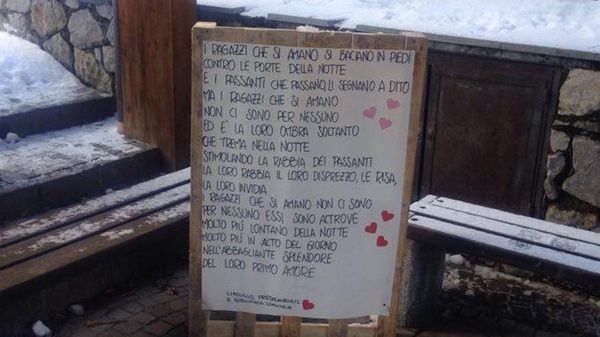 I RAGAZZI CHE SI AMANO SI BACIANO IN PIEDI
CONTRO LE PORTE DELLA NOTTE
E I PASSANTI CHE PASSANO LI SEGNANO A DITO
MA I RAGAZZI CHE SI AMANO
NON CI SONO PER NESSUNO
ED È LA LORO OMBRA SOLTANTO
CHE TREMA NELLA NOTTE
STIMOLANDO LA RABBIA DEI PASSANTI
LA LORO RABBIA IL LORO DISPREZZO, LE RISA,
LA LORO INVIDIA
I RAGAZZI CHE SI AMANO NON CI SONO
PER NESSUNO ESSI SONO ALTROVE
MOLTO PIÚ LONTANO DELLA NOTTE
MOLTO PIÚ IN ALTO DEL GIORNO
NELL'ABBAGLIANTE SPLENDORE
DEL LORO PRIMO AMORE